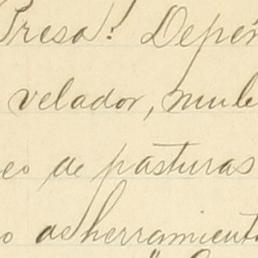 Presa: Depen
velador, mule
eo de pasturas
o de herramient